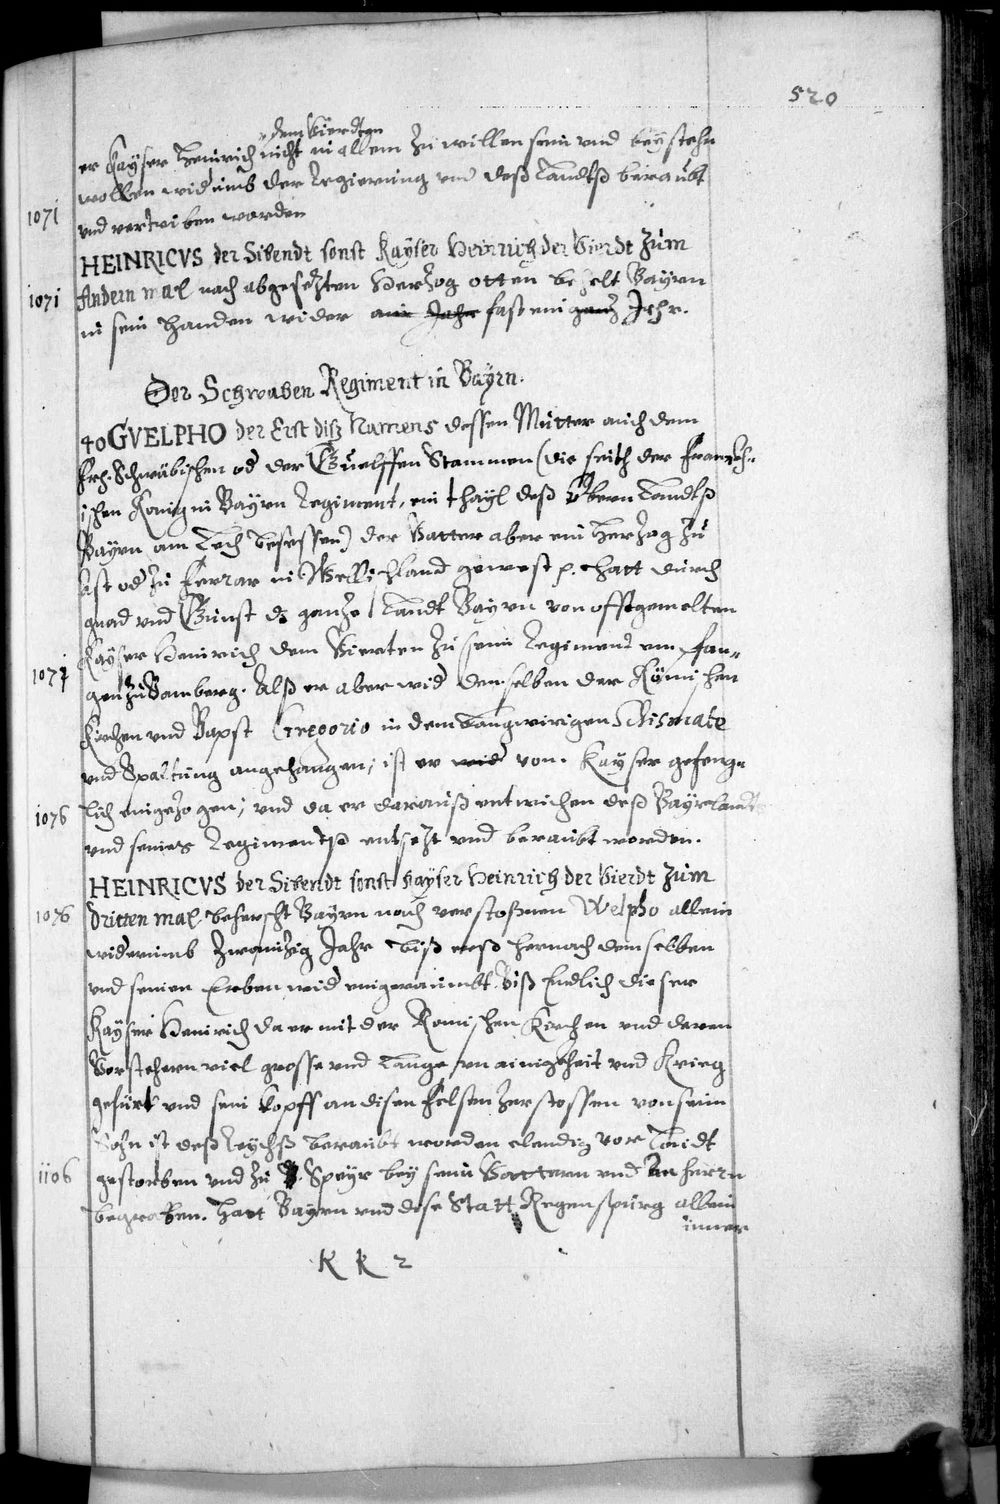 520
dem Vierdten
er Kayser Heinrich nicht in allem zu willen sein und beystehn
wollen widumb der Regierung und deß Landtß beraubt
1071
und vertriben worden
HEINRICVS der Sibendt sonst Kayser Heinrich der Vierdt zum
1071
Andern mal nach abgesezten Herzog otten behelt Bayrn
in sein Handen wider ain Jahr fast ein ganz Jehr.
Der Schwaben Regiment in Bayrn.
40 GVELPHO der Erst diß Namens dessen Mutter auch dem
Schwäbischen od der Guelffen Stammen (die seith der Franzes-
ischen Konig in Bayrn Regiment, ein thayl deß Obern Landtß
Bayrn am Lech besessen) der Vatter aber ein Herzog zu
Ast od zu Ferrar in Wellischland gewest p. hatt durch
gnad und Gunst dz ganze Landt Bayrn von offtgemelten
Kayser Heinrich dem Vierten zu sein Regiment em fan-
107
gen zu Bamberg. Alß er aber wid denselben der Römischen
Kirchen und Bapst Gregorio in dem Langwirigen Schismate
und Spaltung angehangen, ist er wid von Kayser gefeng-
1076
lich eingezogen; und da er darauß entwichen deß Bayrlandts
und seines Regimentß entsezt und beraubt worden.
HEINRICVS der Sibendt sonst Kayser Heinrich der Vierdt zum
1076
Dritten mal beherscht Bayrn nach verstoßnen Welpho allein
widerumb zwainzig Jahr biß erst hernach demselben
und seinen Erben wid eingeraumbt. Biß Endlich dieser
Kayser Heinrich da er mit der Romischen Kirchen und deren
Vorstehern viel grosse und Lange unainigkheit und Krieg
gefürt und sein Kopff an disen Felsen zerstossen von seim
Sohn ist deß Reychß beraubt worden elendig vor Laidt
1106
gestorben und zu Speyr bey sein Vattern und Anherrn
begraben. Hatt Bayrn und dise Statt Regenspurg allein
innen
K k 2